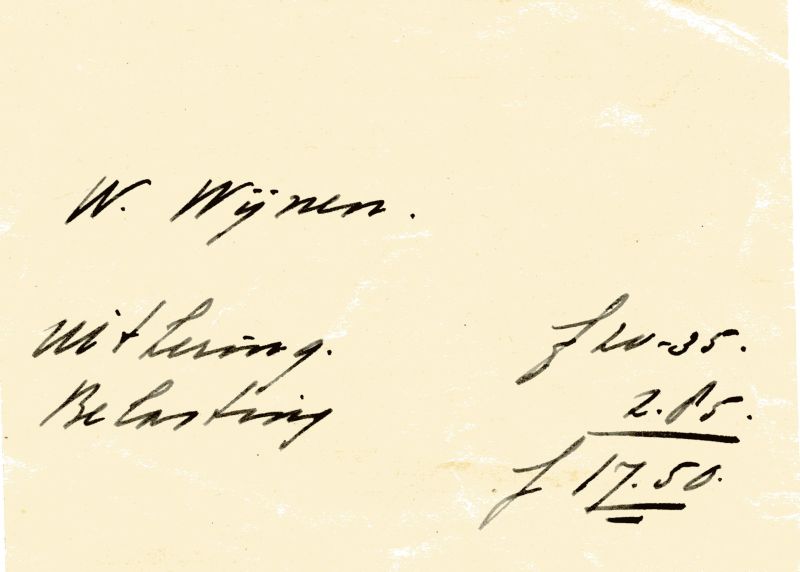 W. Wijnen.
Uitkering. f 20-35.
Belasting 2.85.
f 17.50.